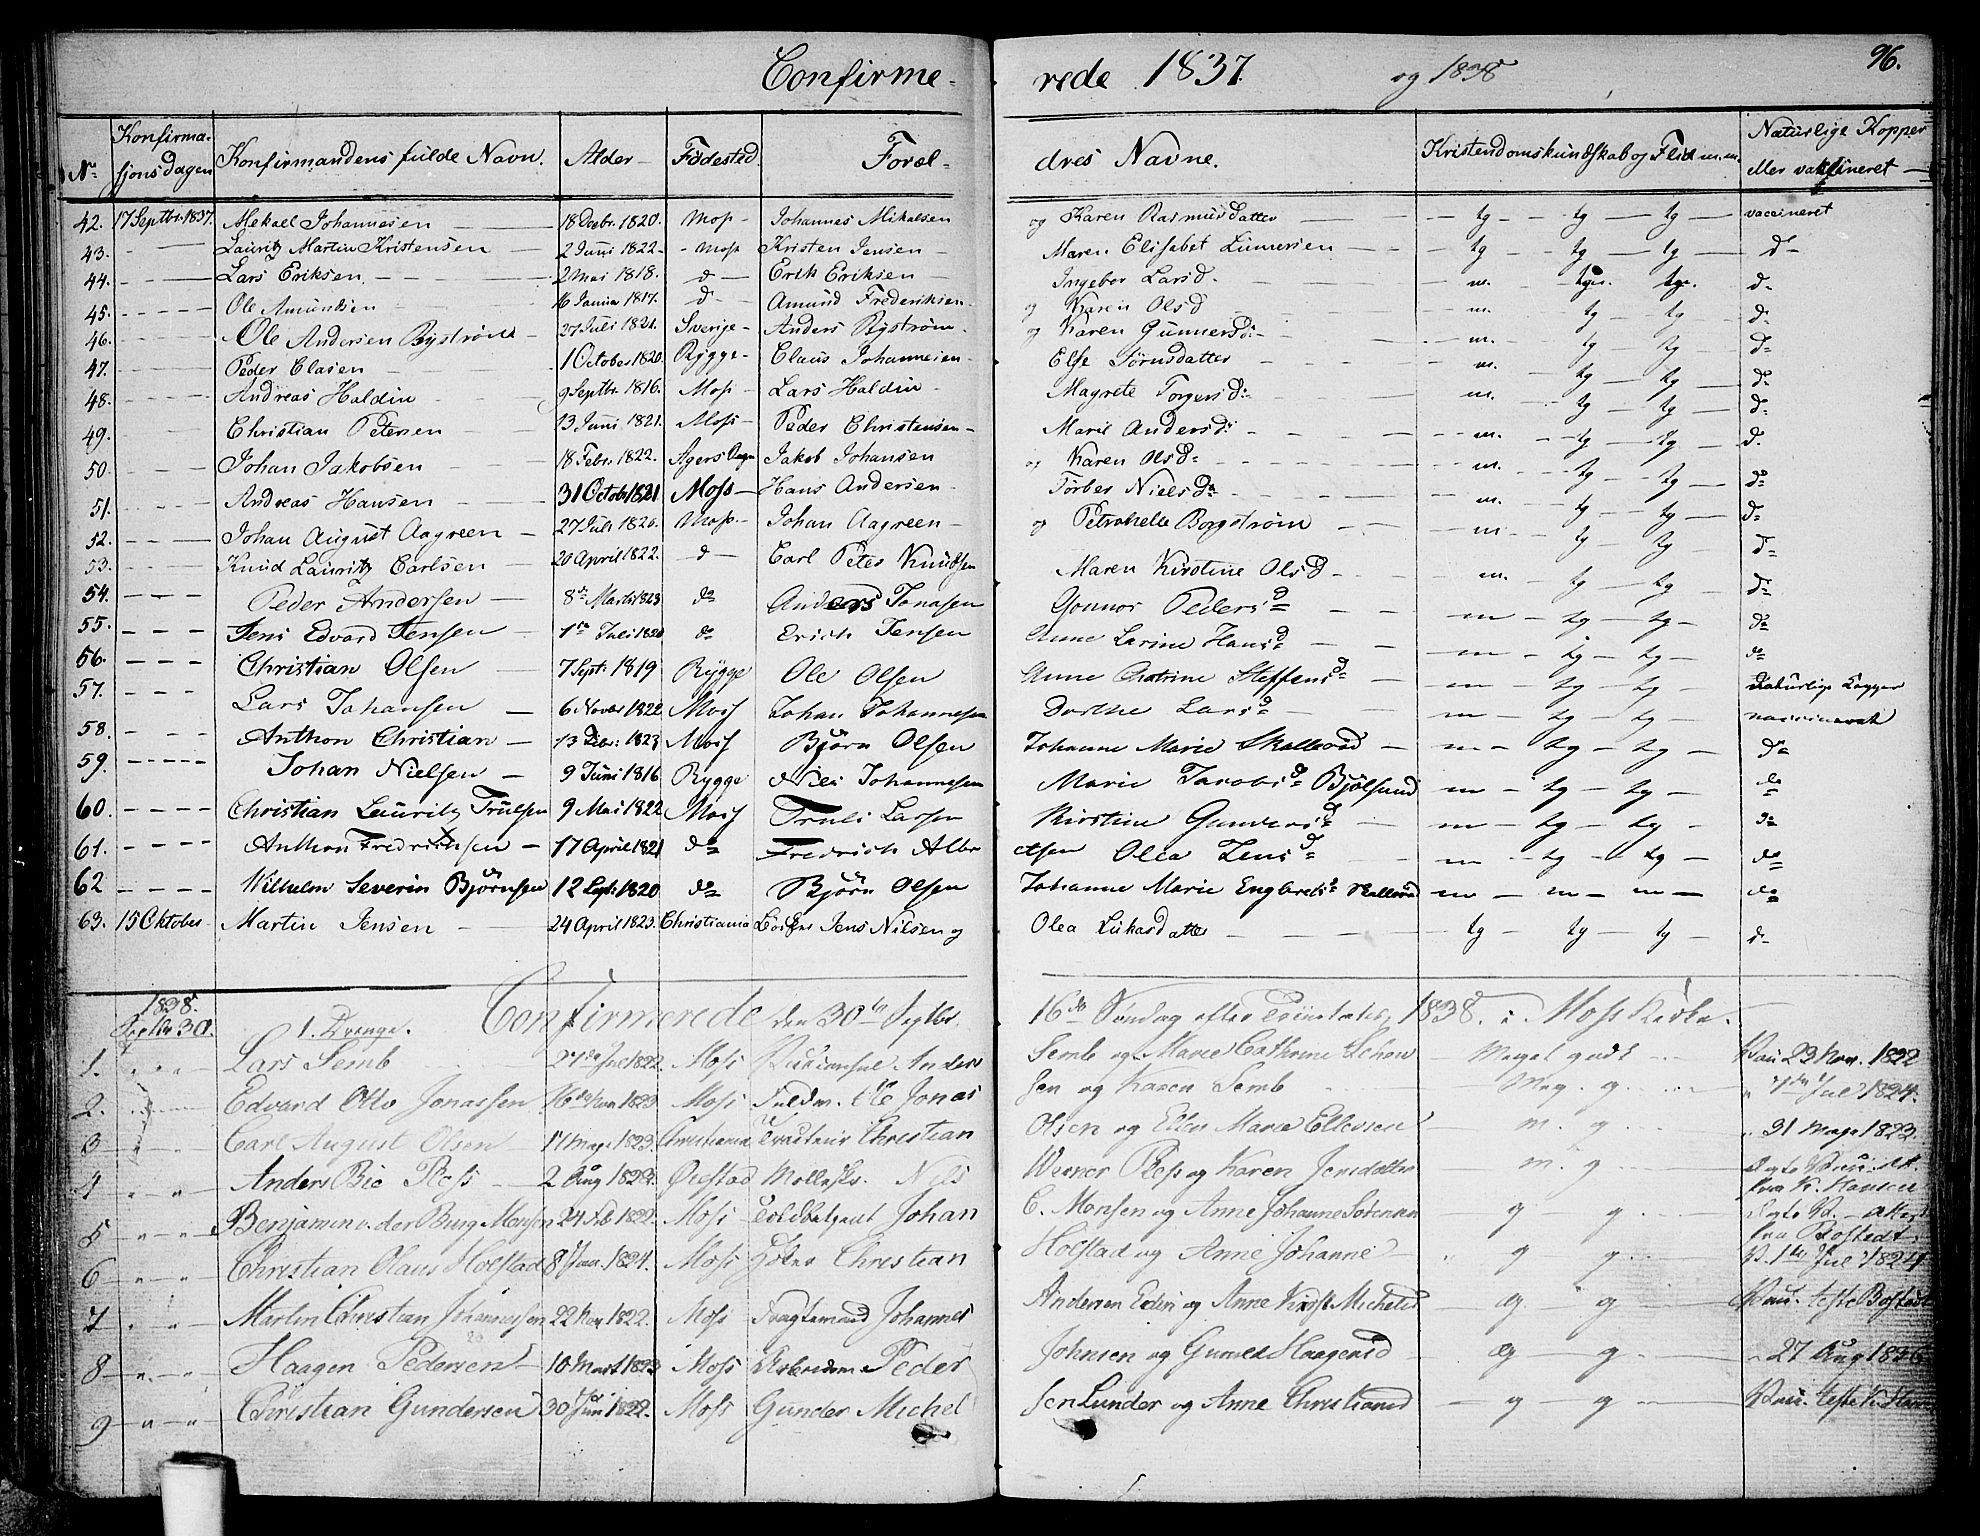 Confirmerede 1837. og 1838 96.
Nr Konfirmasjonsdagen Konfirmandens fulde Navn. Alder Födested. Foreldres Navne. Kristendomskundskab og Flid m.m. Naturlige Kopper eller vakcineret
42. 17 Septbr. 1837. Mekael Johannesen 18 Decbr. 1820. Moss Johannes Mikalsen og Karen Rasmusdatter tg tg tg vaccineret
43. Lauritz Martin Kristensen 2 Juni 1822. Moss Kristen Jensen Maren Elisabet Linnersen tg tg tg do
44. Lars Eriksen 2 Mai 1818. do Erik Eriksen Ingebor Larsd. m. tg. tg. do
45. Ole Amundsen 16 Januar 1817. do Amund Frederiksen og Karen Olsd m. tg tg do
46. Ole Andersen Byström 27 Juli 1821. Sverige Anders Byström og Karen Gunnersd: m. tg tg do
47. Peder Clasen 1 October 1820. Rygge Claus Johannesen Else Törnsdatter m. tg tg do
48. Andreas Haldin 9 Septbr. 1816. Moss Lars Haldin Magrete Torgersd: m. tg tg do
49. Christian Petersen 13 Juni 1821. Moss Peder Christensen Marie Andersd: m. tg tg do
50. Johan Jakobsen 18 Febr. 1822. Agers Jakob Johansen og Karen Olsd m. tg tg do
51. Andreas Hansen 31 Octobr 1821 Moss Hans Andersen Torber Nielsd m. tg tg do
52. Johan August Aagreen 27 Juli 1820. Moss Johan Aagreen og Petronelle Borgström m tg tg do
53. Knud Lauritz Carlsen 20 April 1822. do Carl Peter Knudsen Maren Kirstine Olsd m. tg tg do
54. Peder Andersen 8de Marts 1823 do Anders Jonasen Gonnor Pedersd m tg tg do
55. Jens Edvard Jensen 1ste Juli 1820 do Erich Jensen Anne Larine Hansd m tg tg do
56. Christian Olsen 7 Sept: 1819 Rygge Ole Olsen Anne Chatrine Steffensd m tg tg Naturlige Kopper
57. Lars Johansen 6 Novbr 1822 Moss Johan Johannesen Dorthe Larsd m tg tg vaccineret
58. Anthon Christian 13 Febr: 1823 Moss Björn Olsen Johanne Marie Skallerud m tg tg do
59. Johan Nielsen 9 Juni 1816 Rygge Niels Johannesen Marie Jacobsd Bjölsund m tg tg do
60. Christian Lauritz Trulsen 9 Mai 1822 Moss Truls Larsen Kirstine Gundersd m tg tg do
61. Anthon Fredrichsen 17 April 1821 do Fredrich Albretsen Olea Jensd m tg tg do
62 Wilhelm Severin Björnsen 12 Sept: 1820 do Björn Olsen Johanne Marie Engbretsd Skallerud m m m do
63. 15 Oktober Martin Jensen 24 April 1823. Christiania Jens Nilsen og Olea Lukasdatter tg tg tg do
1838. Septbr 30. 1. Drenge. Confirmerede den 30te Septbr. 16de Söndag efter Trinitatis, 1838. i Moss Kirke.
1. Lars Semb 27de Jul 1822. Moss Anders Semb og Marie Cathrine Schou Meget godt Vac. 23 Nov. 1822
2. Edvard Otto Jonassen 16de Nov 1823 Moss Fuldm. Ole Jonassen og Karen Semb Meg. g. 7de Jul 1824.
3 Carl August Olsen 17 Mage 1823. Christiania Christian Olsen og Ellen Marie Ellevsen m. g. 31 Mage 1823.
4 Anders Bie Pless 2 Aug 1823. Örestad Nils Werner Pless og Karen Jensdatter m. g. fra K. Hansen
5 Benjamin v. der Burg Monsen 24 Feb 1822. Moss Toldbetjent Johan C. Monsen og Anne Johanne Sörensen g g fra Bostedt.
6 Christian Olaus Holstad 8 Jan. 1824. Moss Christian Holstad og Anne Johanne g g V. 1te Jul 1824
7 Martin Christian Johannessen 22 Nov 1822. Moss Fragtemand Johannes Andersen Eden og Anne Kirst. Michelsd g g Vac. teste Bostedt
8 Haagen Pedersen 10 Marts 1823 Moss Peder Johnsen og Gunild Haagensd g g 27 Aug 1836
9 Christian Gundersen 30 Jun 1822. Moss Gunder Michelsen Lunder og Anne Christiansd g g Vac. teste K. Hansen